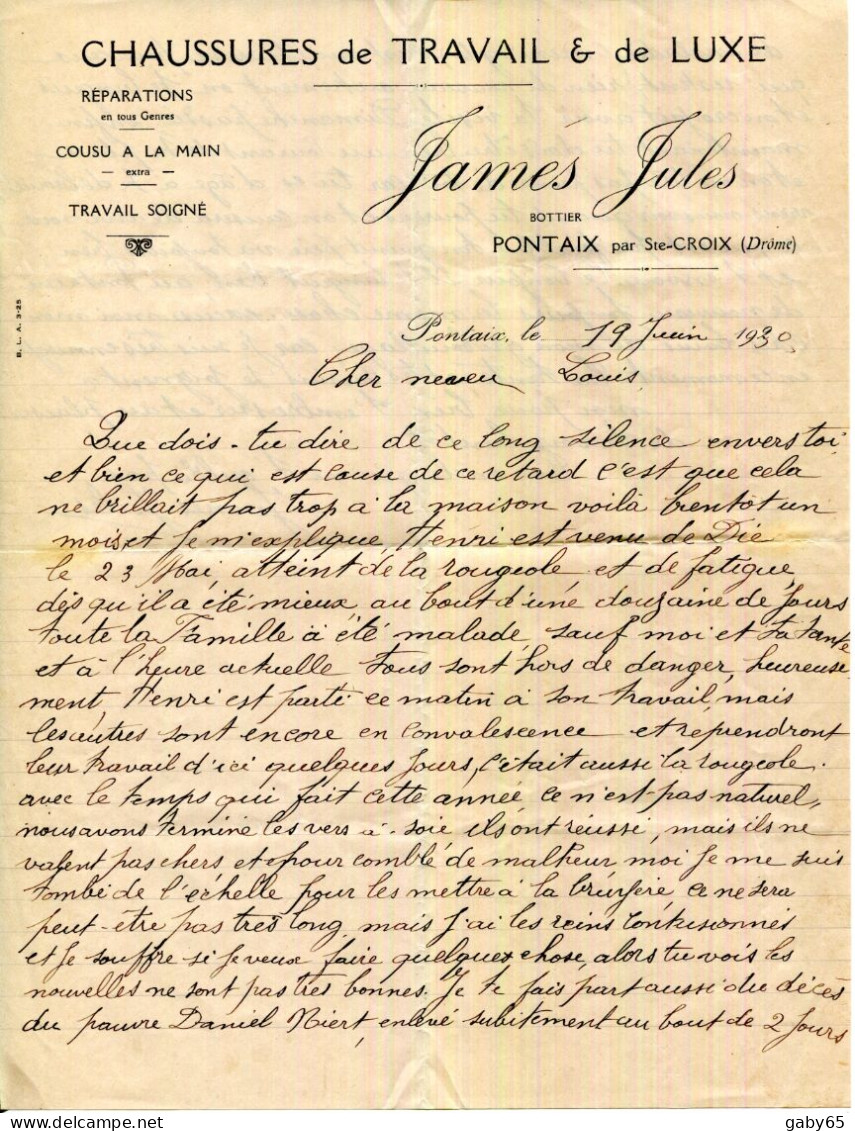 CHAUSSURES de TRAVAIL & de LUXE
RÉPARATIONS
en tous Genres
COUSU A LA MAIN
extra
TRAVAIL SOIGNÉ
Jamés Jules
BOTTIER
PONTAIX par Ste-CROIX (Drôme)
B. L. A. 3-25
Pontaix, le 19 Juin 1930
Cher neveu Louis,
Que dois-tu dire de ce long silence envers toi,
et bien ce qui est cause de ce retard c'est que cela
ne brillait pas trop à la maison voilà bientôt un
mois et je m'explique, Henri est venu de Die
le 23 Mai, atteint de la rougeole et de fatigue,
dès qu'il a été mieux au bout d'une douzaine de Jours
toute la Famille à été malade, sauf moi et ta tante
et à l'heure actuelle tous sont hors de danger, heureuse
ment, Henri est parti ce matin à son travail, mais
les autres sont encore en convalescence et reprendront
leur travail d'ici quelques Jours, c'était aussi la rougeole.
avec le temps qui fait cette année, ce n'est pas naturel,
nous avons terminé les vers à-soie ils ont réussi, mais ils ne
valent pas chers et pour comble de malheur moi Je me suis
tombé de l'échelle pour les mettre à la bruyère ce ne sera
peut-être pas très long, mais J'ai les reins contusionnés
et Je souffre si Je veux faire quelque chose, alors tu vois les
nouvelles ne sont pas très bonnes. Je te fais part aussi du décès
du pauvre Daniel enlevé subitement au bout de 2 Jours
gaby65